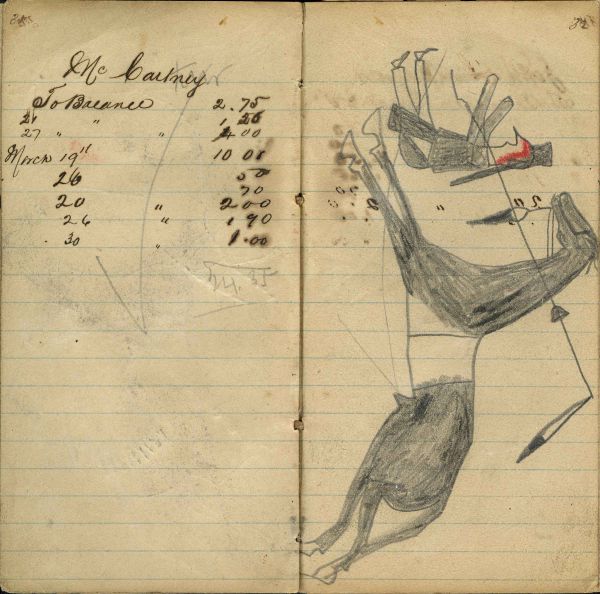 Mc Cartney
To Balance 2.75
21 " " 1 25
27 " " 4 00
March 19th 10 00
26 50
70
20 " 2 00
26 " 1 90
30 " 1.00
32